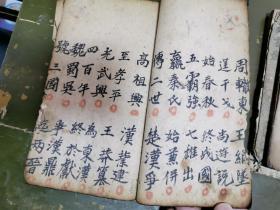 周轍東 王綱墜
逞干戈 尚遊說
始春秋 終戰國
五霸強 七雄出
嬴秦氏 始兼併
傳二世 楚漢爭
高祖興 漢業建
至孝平 王莽篡
光武興 為東漢
四百年 終於獻
魏蜀吳 爭漢鼎
號三國 迄兩晉